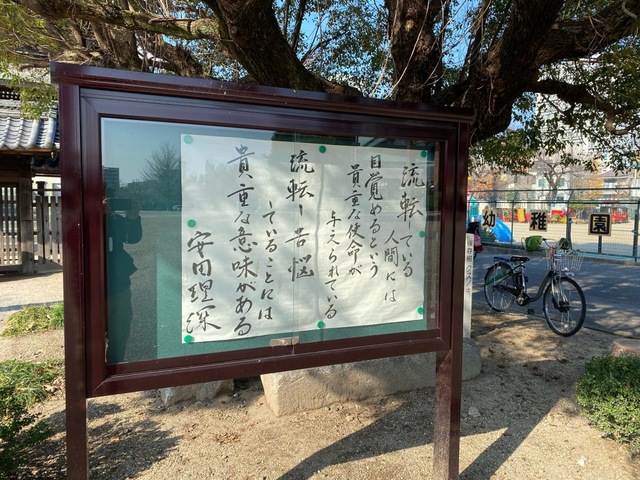 流転している
人間には
目覚めるという
貴重な使命が
与えられている
流転し苦悩
していることには
貴重な意味がある
安田理深
幼稚園